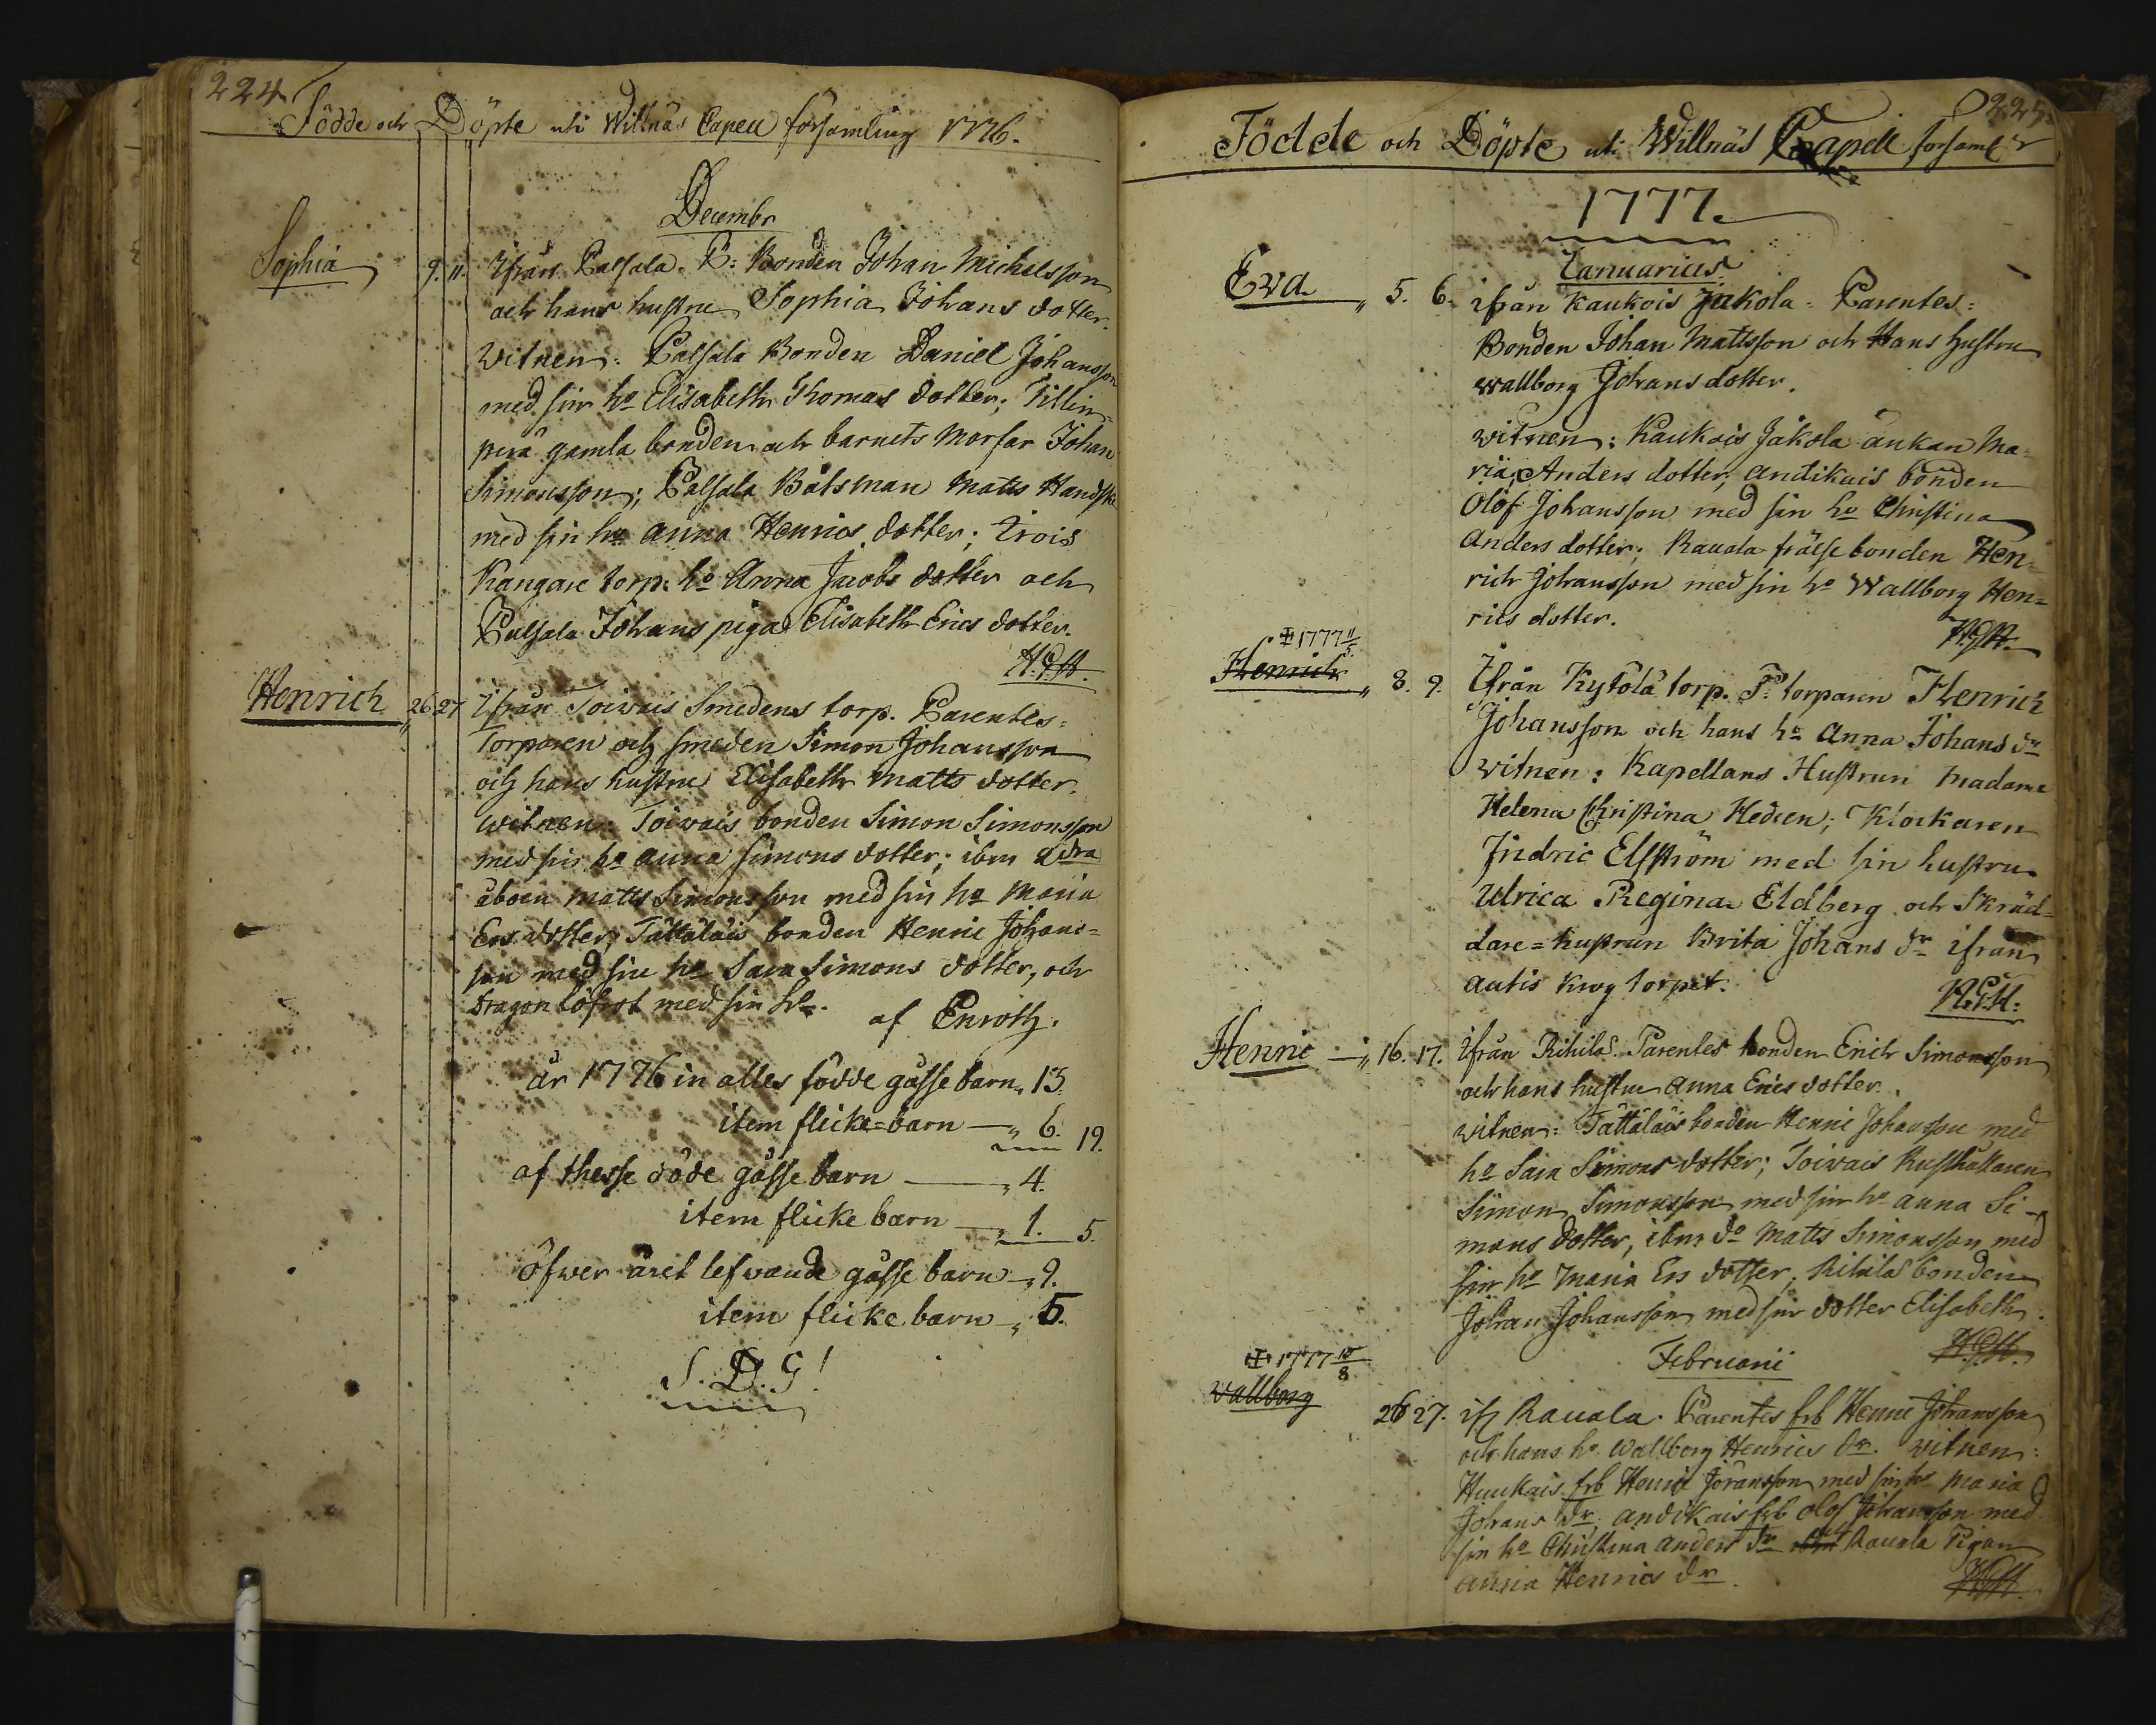 224
Födde och Döpte uti Willnäs Capell församling 1776.
Decembr
Sophia 9. 11. Ifrån Palsala. P: Bonden Johan Michelsson
och hans hustru Sophia Johans dotter.
witnen: Palsala Bonden Daniel Johansson
med sin ho Elisabeth Thomas dotter; Tillin=
perä gamla bonden och barnets Morfar Johan
Simonsson; Palsala Båtsman Matts Handske
med sin ho Anna Henrics dotter; Trois
Kangare torp. ho Anna Jacobs dotter och
Palsala Johans piga Elisabeth Erics dotter.
H.G.H.
Henrich 26 27 Ifrån Toivais Smedens torp. Parentes:
Torparen och smeden Simon Johansson
och hans hustru Elisabeth Matts dotter.
witnen: Toivais bonden Simon Simonsson
med sin ho Anna Simons dotter; ibm Adra
åboen Matts Simonsson med sin ho Maria
Ers dotter; Tättäläis bonden Henric Johans=
son med sin ho Sara Simons dotter, och
dragon Löfqst med sin ho.
af Enroth.
år 1776 in alles födde gåsse barn " 13.
item flicke=barn — " 6. 19.
af thesse döde gåsse barn — " 4.
item flicke barn — " 1. 5.
Öfwer året lefwande gåsse barn — " 9.
item flicke barn " 5.
S. D. G!
225.
Födde och Döpte uti Willnäs Capell forsamlr
1777.
Januarius
Eva " 5. 6. ifrån Kaukois Jakola. Parentes:
Bonden Johan Mattsson och Hans Hustru
Wallborg Johans dotter.
witnen: Kaukois Jakola änkan Ma=
ria Anders dotter; Andikais bonden
Olof Johansson med sin ho Christina
Anders dotter; Rauala frälse bonden Hen=
rich Johansson med sin ho Wallborg Hen=
rics dotter.
H.G.H.
✠ 1777 11/5.
Henrich " 8. 9. Ifrån Kytölä torp. P. torparen Henrich
Johansson och hans ho Anna Johans dr
witnen: Kapellans Hustrun Madame
Helena Christina Hedeen; Klockaren
Indric Elfström med sin hustru
Ulrica Regina Eldberg och Skräd=
dare=hustrun Brita Johans dr ifrån
Autis krog torpet.
H.G.H.
Henric — " 16. 17. Ifrån Rihilä. Parentes bonden Erich Simonsson
och hans hustru Anna Erics dotter.
witnen: Tättäläis bonden Henric Johansson med
ho Sara Simons dotter; Toivais Rusthållaren
Simon Simonsson med sin ho Anna Si=
mons dotter, ibm do Matts Simonsson med
sin ho Maria Ers dotter; Rihilä bonden
Johan Johansson med sin dotter Elisabeth.
H.G.H.
Februarii
✠ 1777 10/8
Wallborg 26 27. ifr Rauala. Parentes frb Henric Johansson
och hans ho Wallborg Henrics dr. witnen:
Huukais frb Henric Göransson med sin ho Maria
Johans dr. Andikais frb Olof Johansson med
sin ho Christina Anders dr Rauala Pigan
Anna Henrics dr.
H.G.H.